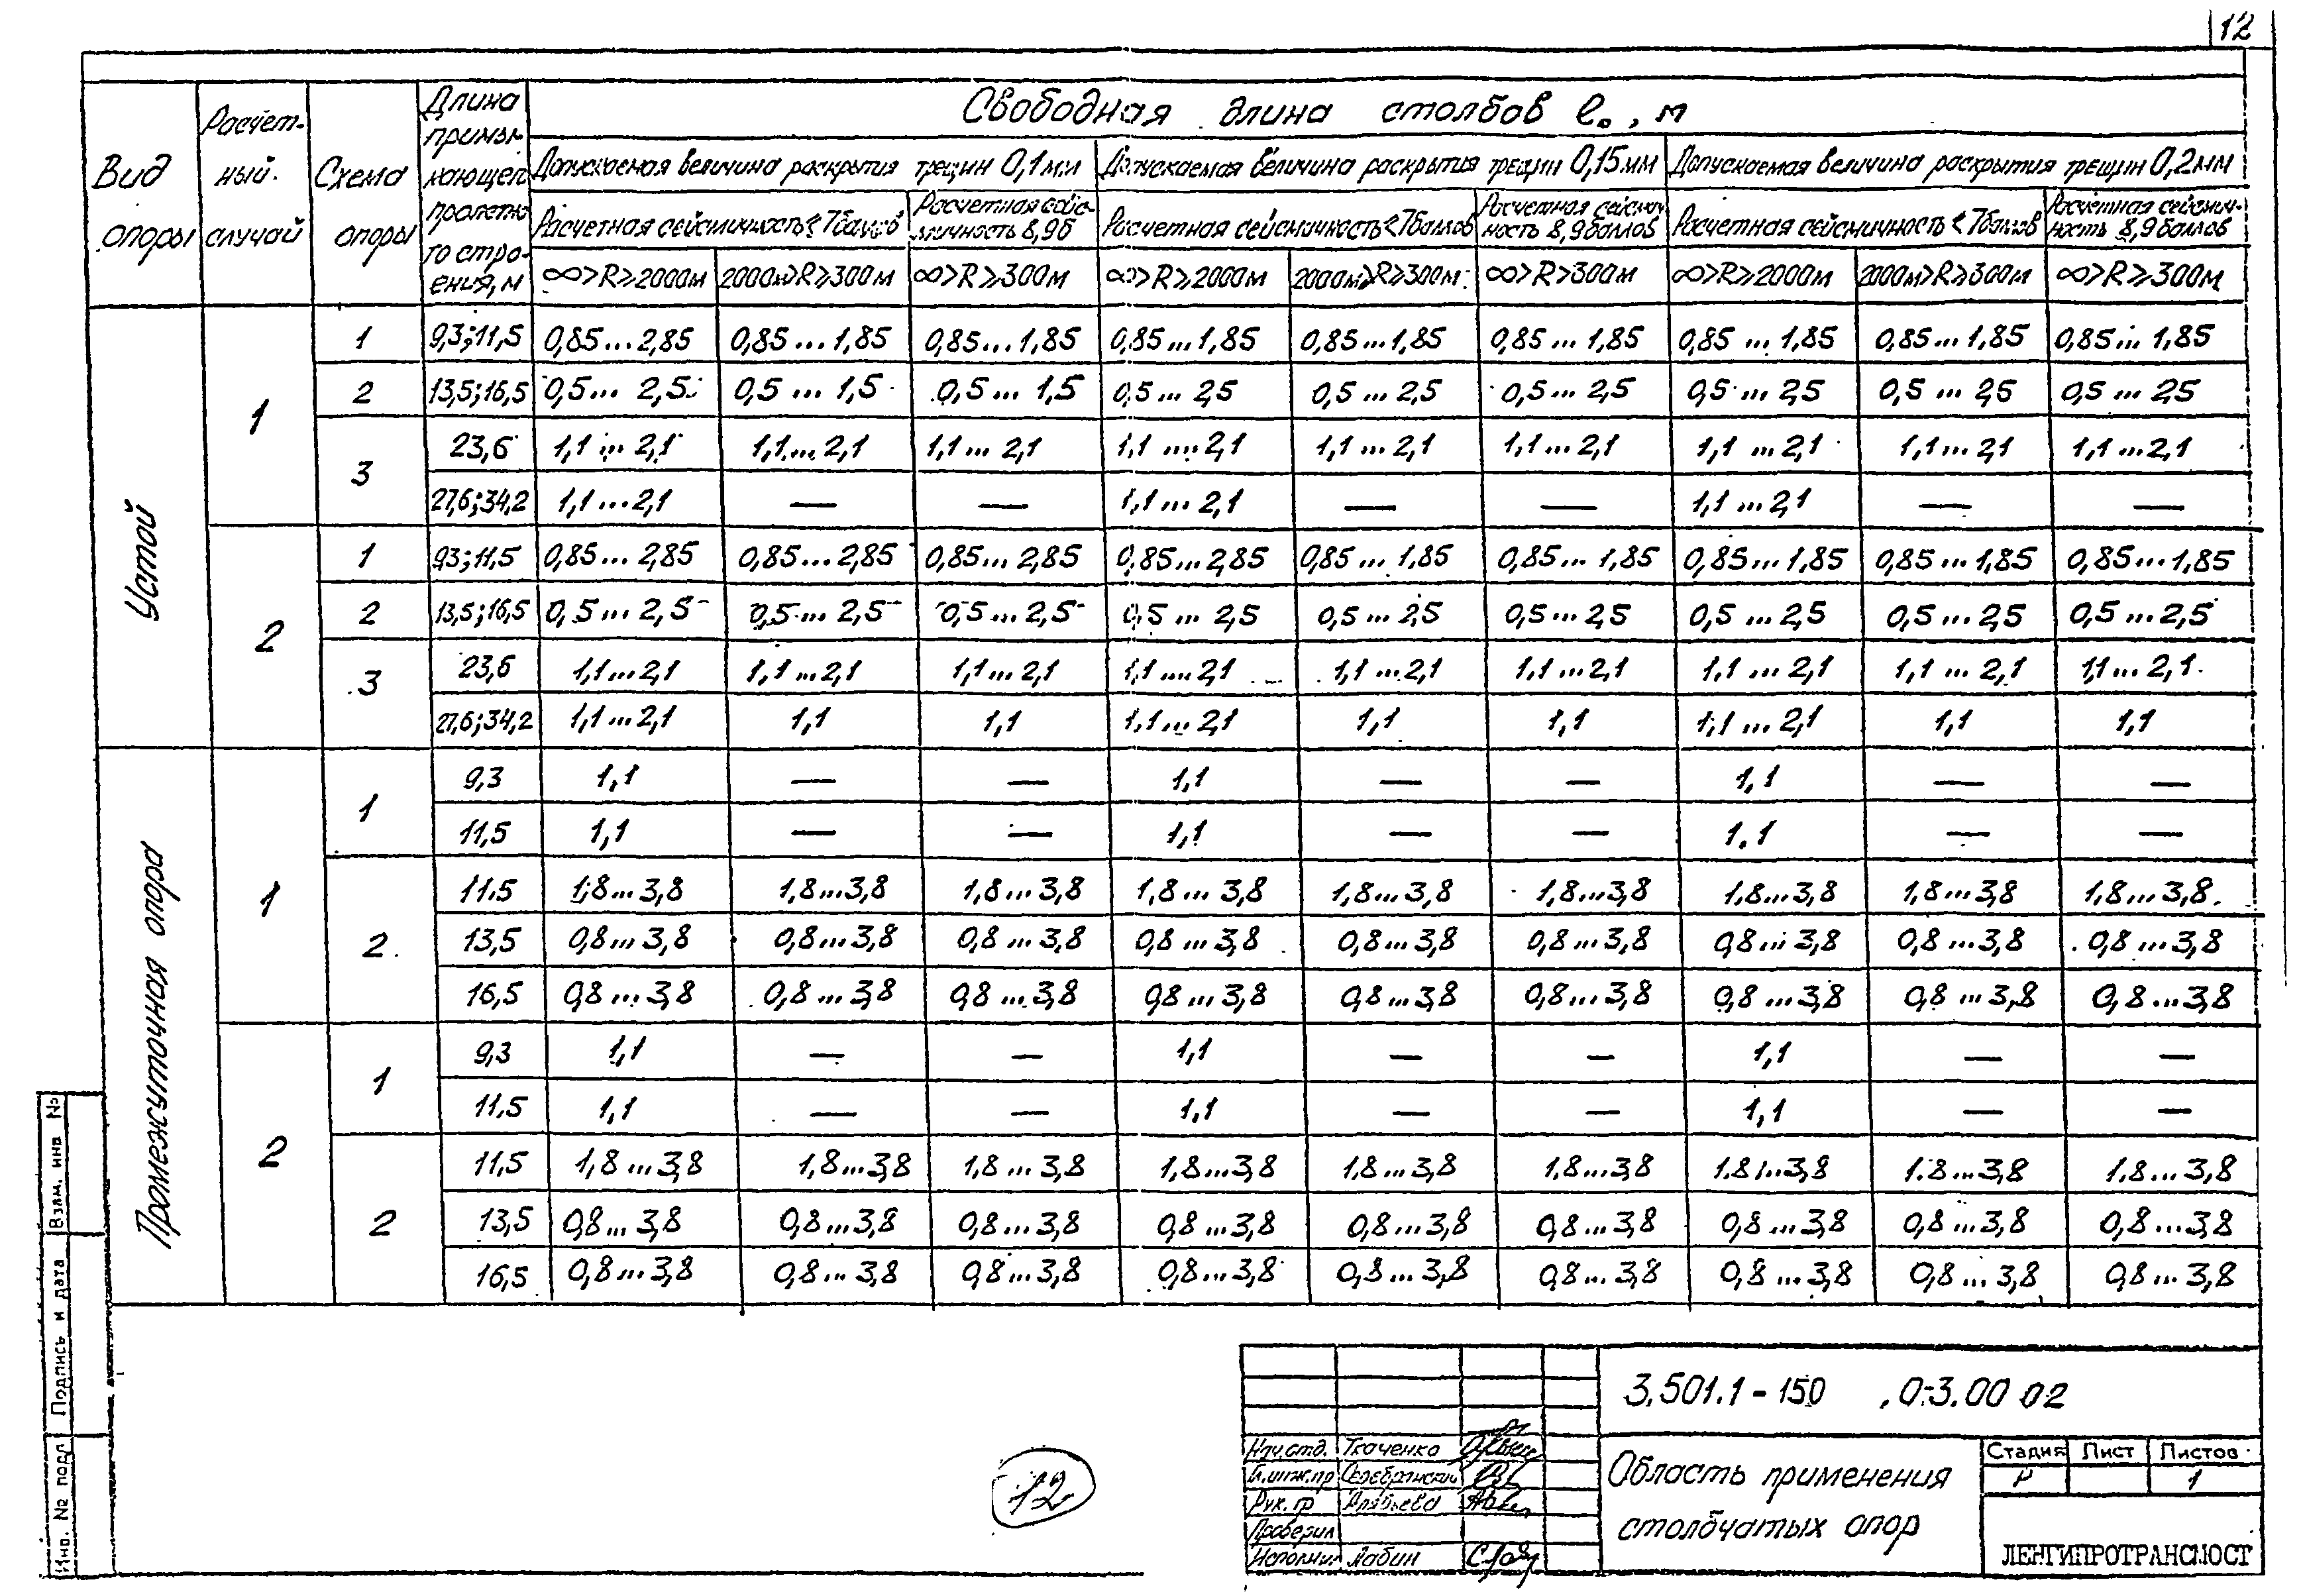 12
Вид опоры | Расчет-ный случай | Схема опоры | Длина примы-кающего пролетно-го стро-ения, м | Свободная длина столбов l₀, м
Допускаемая величина раскрытия трещин 0,1мм | Допускаемая величина раскрытия трещин 0,15мм | Допускаемая величина раскрытия трещин 0,2мм
Расчетная сейсмичность ≤ 7баллов | Расчетная сейс-мичность 8,9б | Расчетная сейсмичность < 7баллов | Расчетная сейсмич-ность 8,9баллов | Расчетная сейсмичность < 7баллов | Расчетная сейсмич-ность 8,9баллов
∞>R≥2000м | 2000м>R≥300м | ∞>R≥300м | ∞>R≥2000м | 2000м>R≥300м | ∞>R>300м | ∞>R≥2000м | 2000м>R≥300м | ∞>R≥300м
Устой | 1 | 1 | 9,3;11,5 | 0,85...2,85 | 0,85...1,85 | 0,85...1,85 | 0,85...1,85 | 0,85...1,85 | 0,85...1,85 | 0,85...1,85 | 0,85...1,85 | 0,85...1,85
2 | 13,5;16,5 | 0,5...2,5 | 0,5...1,5 | 0,5...1,5 | 0,5...2,5 | 0,5...2,5 | 0,5...2,5 | 0,5...2,5 | 0,5...2,5 | 0,5...2,5
3 | 23,6 | 1,1...2,1 | 1,1...2,1 | 1,1...2,1 | 1,1...2,1 | 1,1...2,1 | 1,1...2,1 | 1,1...2,1 | 1,1...2,1 | 1,1...2,1
27,6;34,2 | 1,1...2,1 | — | — | 1,1...2,1 | — | — | 1,1...2,1 | — | —
2 | 1 | 9,3;11,5 | 0,85...2,85 | 0,85...2,85 | 0,85...2,85 | 0,85...2,85 | 0,85...1,85 | 0,85...1,85 | 0,85...1,85 | 0,85...1,85 | 0,85...1,85
2 | 13,5;16,5 | 0,5...2,5 | 0,5...2,5 | 0,5...2,5 | 0,5...2,5 | 0,5...2,5 | 0,5...2,5 | 0,5...2,5 | 0,5...2,5 | 0,5...2,5
3 | 23,6 | 1,1...2,1 | 1,1...2,1 | 1,1...2,1 | 1,1...2,1 | 1,1...2,1 | 1,1...2,1 | 1,1...2,1 | 1,1...2,1 | 1,1...2,1
27,6;34,2 | 1,1...2,1 | 1,1 | 1,1 | 1,1...2,1 | 1,1 | 1,1 | 1,1...2,1 | 1,1 | 1,1
Промежуточная опора | 1 | 1 | 9,3 | 1,1 | — | — | 1,1 | — | — | 1,1 | — | —
11,5 | 1,1 | — | — | 1,1 | — | — | 1,1 | — | —
2 | 11,5 | 1,8...3,8 | 1,8...3,8 | 1,8...3,8 | 1,8...3,8 | 1,8...3,8 | 1,8...3,8 | 1,8...3,8 | 1,8...3,8 | 1,8...3,8
13,5 | 0,8...3,8 | 0,8...3,8 | 0,8...3,8 | 0,8...3,8 | 0,8...3,8 | 0,8...3,8 | 0,8...3,8 | 0,8...3,8 | 0,8...3,8
16,5 | 0,8...3,8 | 0,8...3,8 | 0,8...3,8 | 0,8...3,8 | 0,8...3,8 | 0,8...3,8 | 0,8...3,8 | 0,8...3,8 | 0,8...3,8
2 | 1 | 9,3 | 1,1 | — | — | 1,1 | — | — | 1,1 | — | —
11,5 | 1,1 | — | — | 1,1 | — | — | 1,1 | — | —
2 | 11,5 | 1,8...3,8 | 1,8...3,8 | 1,8...3,8 | 1,8...3,8 | 1,8...3,8 | 1,8...3,8 | 1,8...3,8 | 1,8...3,8 | 1,8...3,8
13,5 | 0,8...3,8 | 0,8...3,8 | 0,8...3,8 | 0,8...3,8 | 0,8...3,8 | 0,8...3,8 | 0,8...3,8 | 0,8...3,8 | 0,8...3,8
16,5 | 0,8...3,8 | 0,8...3,8 | 0,8...3,8 | 0,8...3,8 | 0,8...3,8 | 0,8...3,8 | 0,8...3,8 | 0,8...3,8 | 0,8...3,8
Взам. инв №
Подпись и дата
Инв. № подл
12
3.501.1-150 .0-3.00 02
Нач.отд. Ткаченко
Гл.инж.пр Серебрянский
Рук. гр
Проверил
Исполнил Лабин
Область применения
столбчатых опор
Стадия | Лист | Листов
Р | | 1
ЛЕНГИПРОТРАНСМОСТ